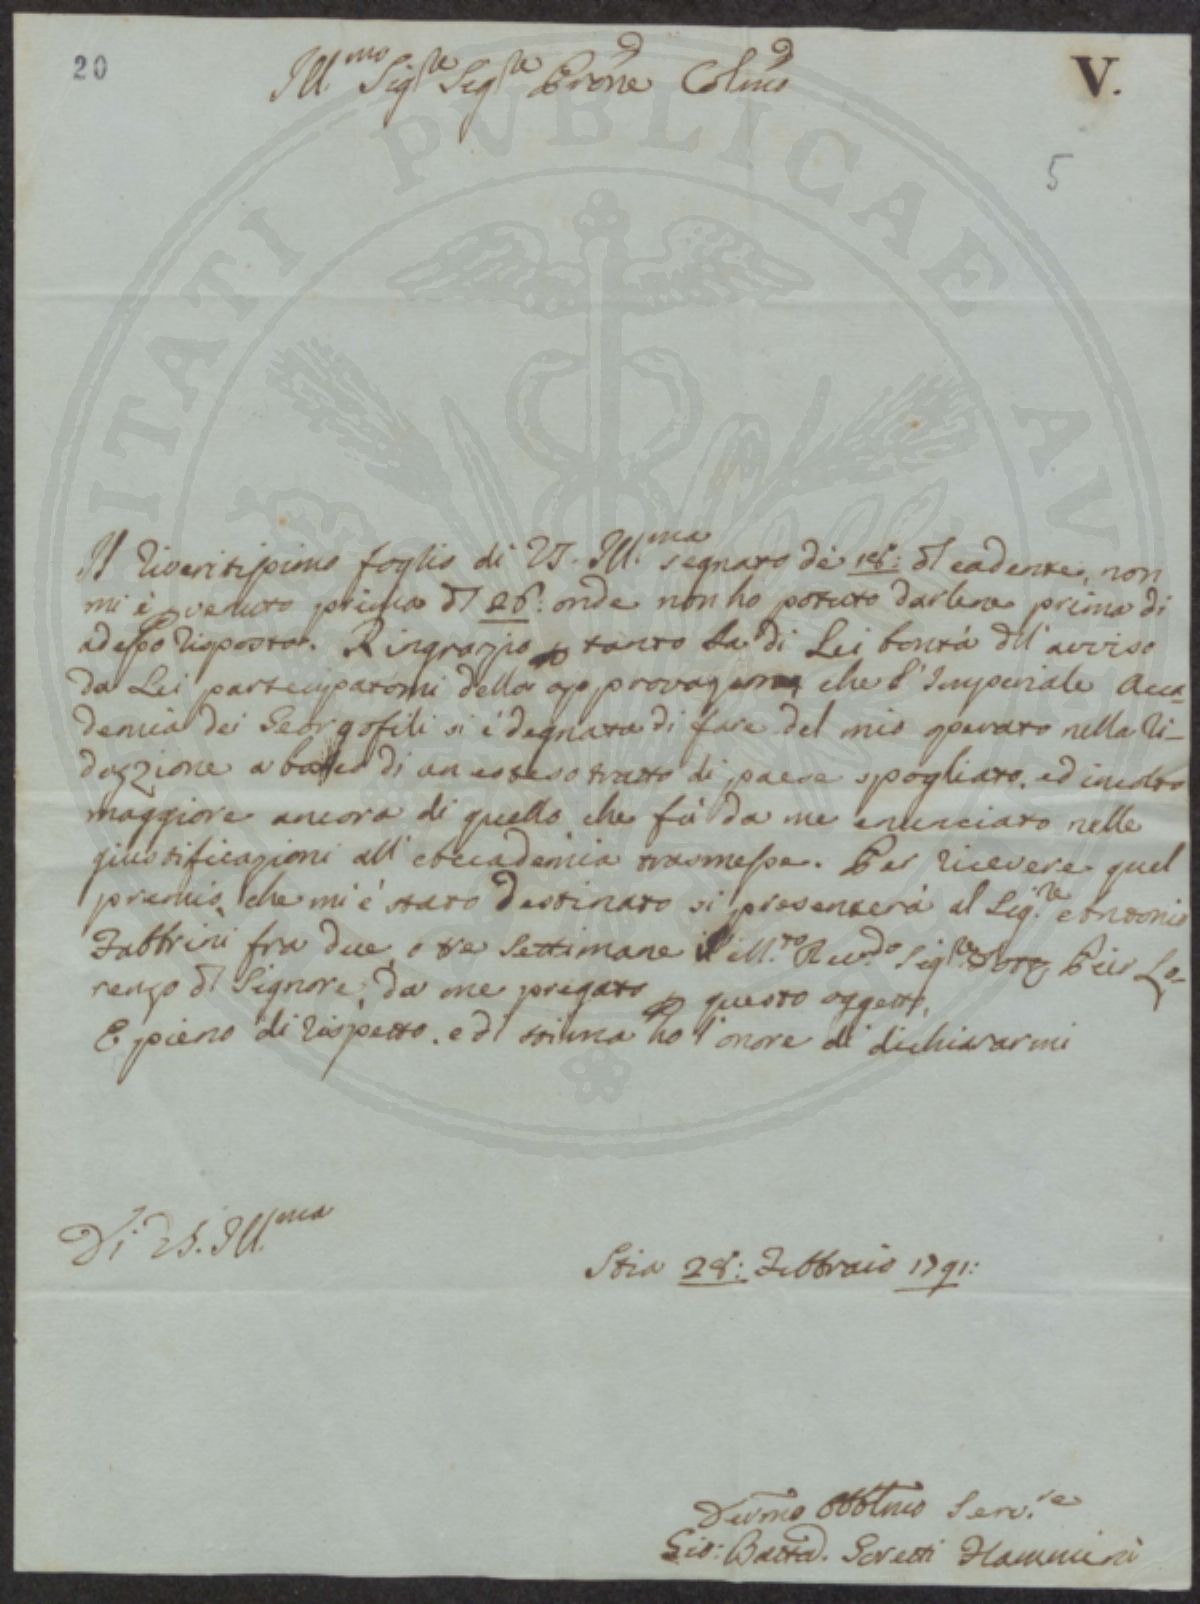 20
Ill.mo Sig.re Sig.re Prone Colmo
V.
5
PUBLICAE
Il riveritissimo foglio di VS. Ill.ma segnato dè 18: dl cadente, non
mi è venuto prima dl 26: onde non ho potuto darlene prima di
adesso risposta. Ringrazio p tanto la di Lei bontà dll' avviso
da Lei partecipatomi della approvazione che l'Imperiale Acca-
demia dei Georgofili si è degnata di fare del mio operato nella ri-
duzzione a bosco di un esteso tratto di paese spogliato, ed inoltre
maggiore ancora di quello che fù da me enunciato nelle
giustificazioni all' Accademia trasmesse. Per ricevere quel
premio, che mi è stato destinato si presenterà al Sig.re Antonio
Fabbrini fra due, o tre settimane il M.to Rev.do Sig.re Pier Lo-
renzo dl Signore, da me pregato p questo oggetto,
E pieno di rispetto, e dl stima ho l'onore di dichiararmi
Di VS. Ill.ma
Stia 28: Febbraio 1791:
Devmo Obblmo Serv.re
Gio: Batta. Goretti Flamminì